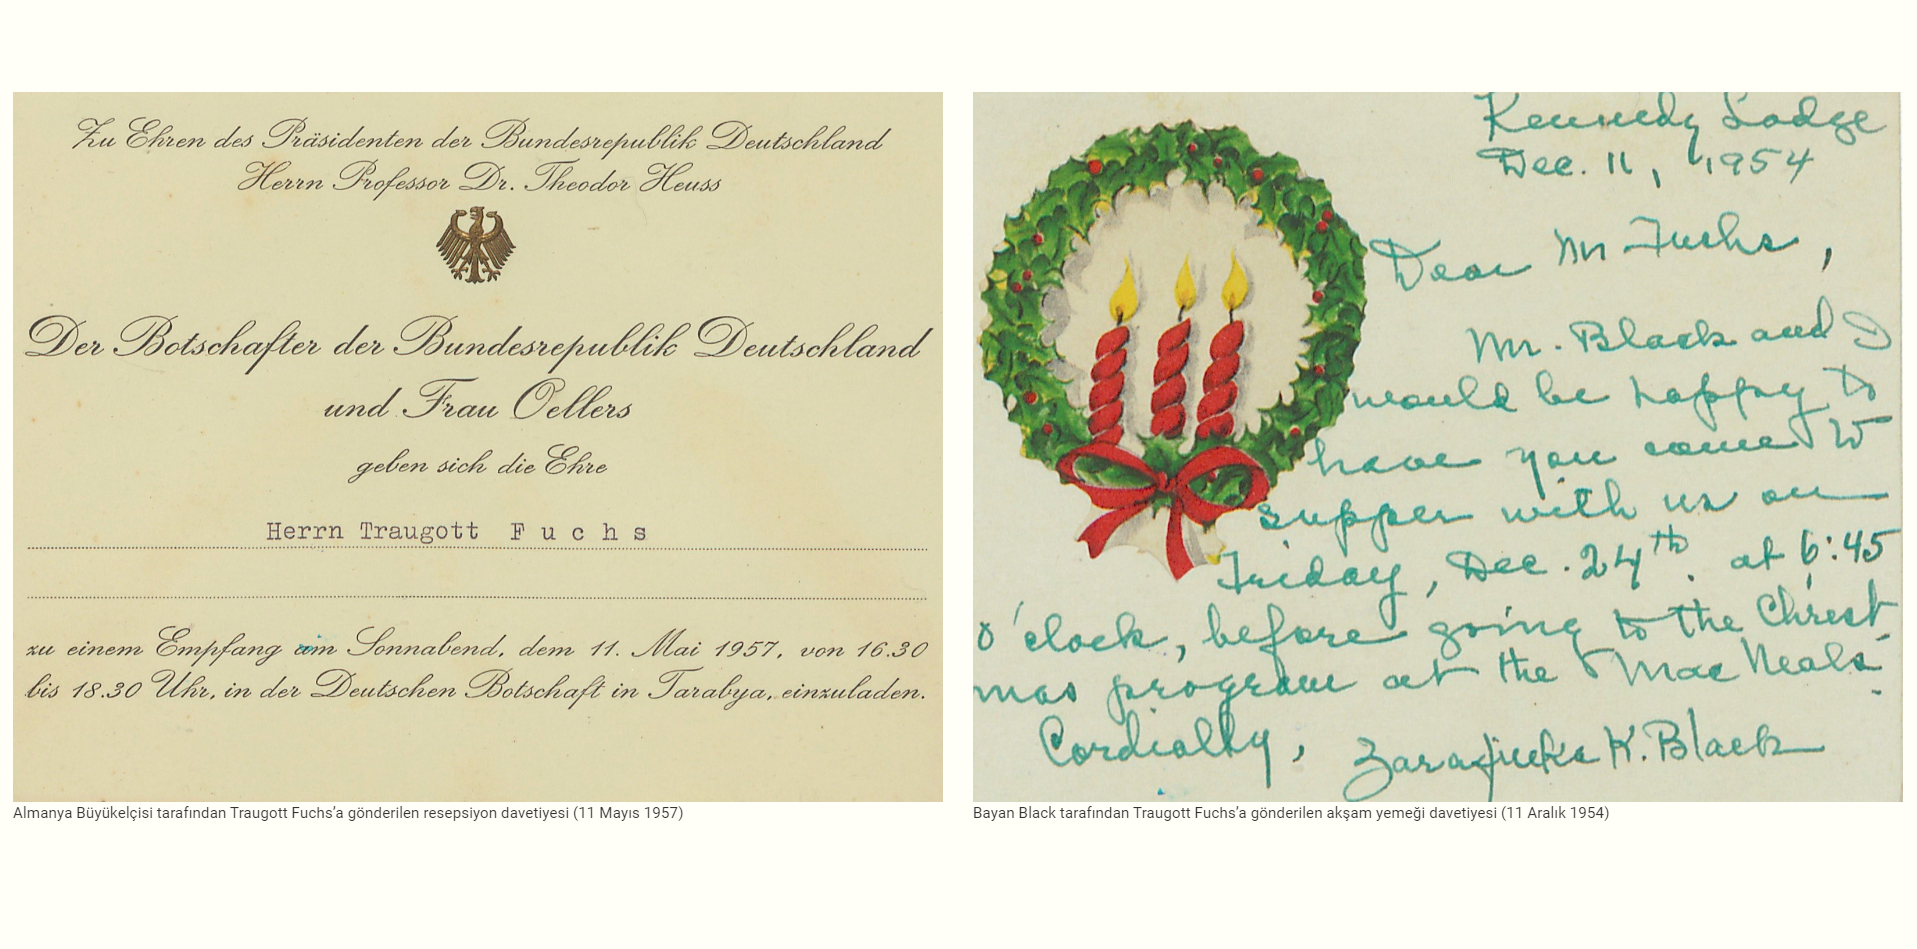 Zu Ehren des Präsidenten der Bundesrepublik Deutschland
Herrn Professor Dr. Theodor Heuss
Der Botschafter der Bundesrepublik Deutschland
und Frau Oellers
geben sich die Ehre
Herrn Traugott F u c h s
zu einem Empfang am Sonnabend, dem 11. Mai 1957, von 16.30
bis 18.30 Uhr, in der Deutschen Botschaft in Tarabya, einzuladen.
Almanya Büyükelçisi tarafından Traugott Fuchs’a gönderilen resepsiyon davetiyesi (11 Mayıs 1957)
Kennedy Lodge
Dec. 11, 1954
Dear Mr Fuchs,
Mr. Black and I
would be happy to
have you come to
supper with us on
Friday, Dec. 24th. at 6:45
o'clock, before going to the Christ
mas program at the MacNeals.
Cordially, K. Black
Bayan Black tarafından Traugott Fuchs’a gönderilen akşam yemeği davetiyesi (11 Aralık 1954)